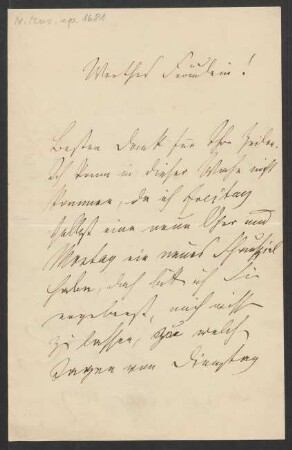 N. Mus. ep. 1681
Werthes Fräulein!
Besten Dank für Ihre Zeilen.
Ich kann in dieser Woche nicht
kommen, da ich Freitag
selbst eine neue Oper und
Montag ein neues Schauspiel
habe, doch bitte ich Sie
ergebenst, mich wissen
zu lassen, zu welch
Tagen von Dienstag